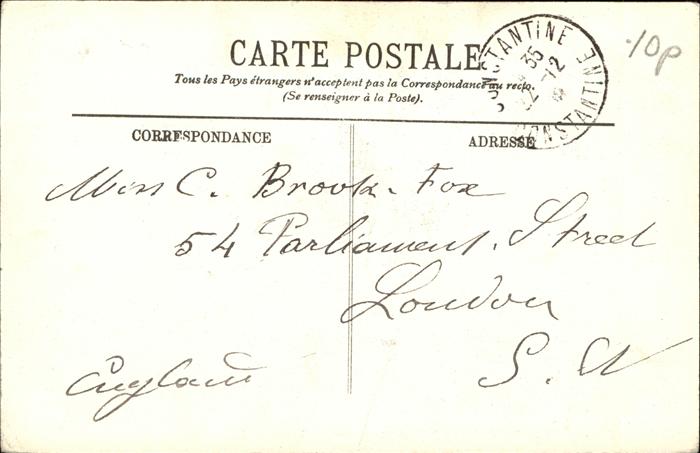 CARTE POSTALE
Tous les Pays étrangers n'acceptent pas la Correspondance au recto.
(Se renseigner à la Poste).
CONSTANTINE
35
12
CONSTANTINE
10p
CORRESPONDANCE
ADRESSE
Miss C. Brook-Fox
54 Parliament. Street
London
S. W
England